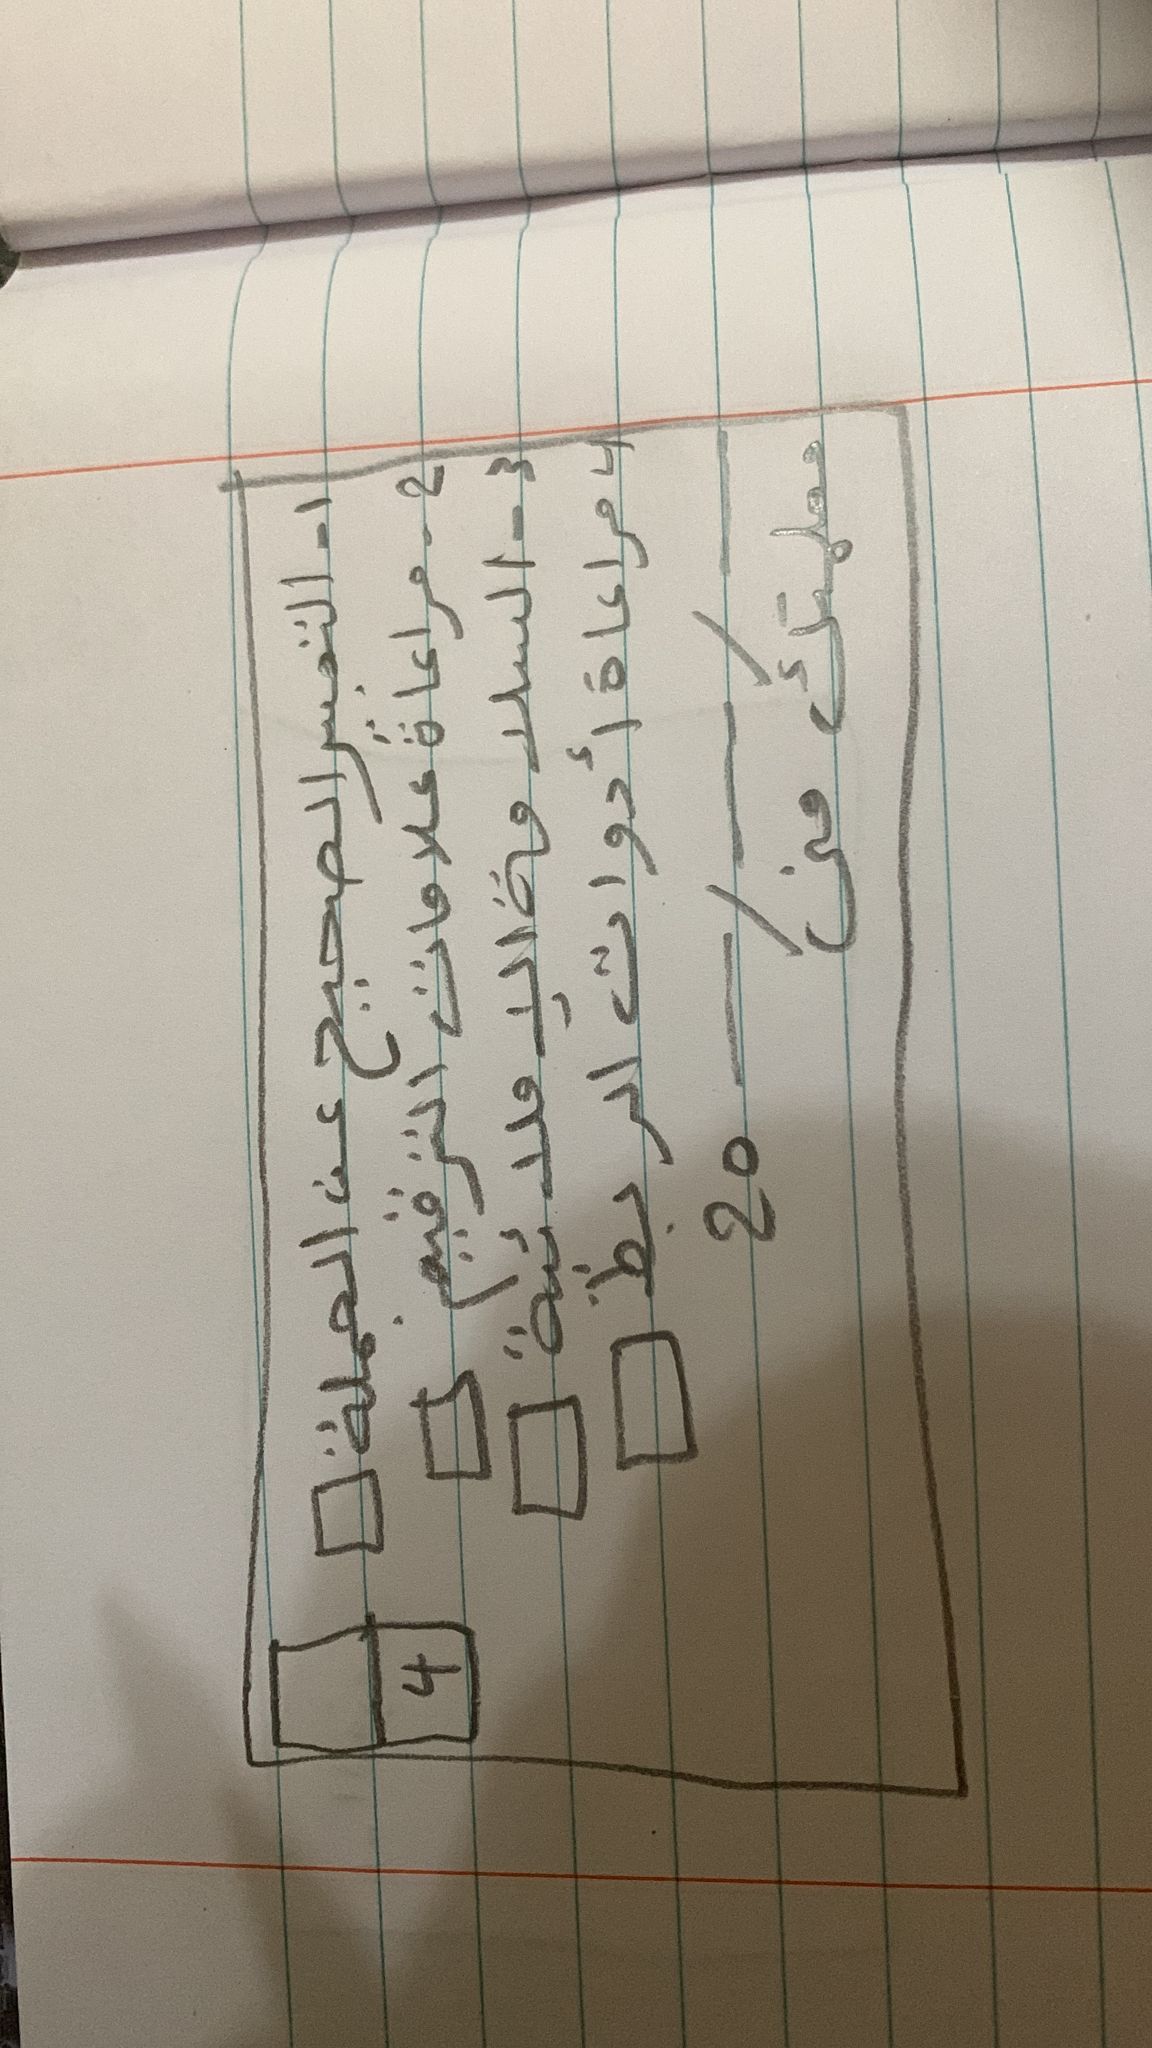 1- التعبير الصحيح عن الجملة
2- مراعاة علامات الترقيم
3- السلامة الإملائية
4 مراعاة أدوات الربط
4
20 — / — / —
معلمتك